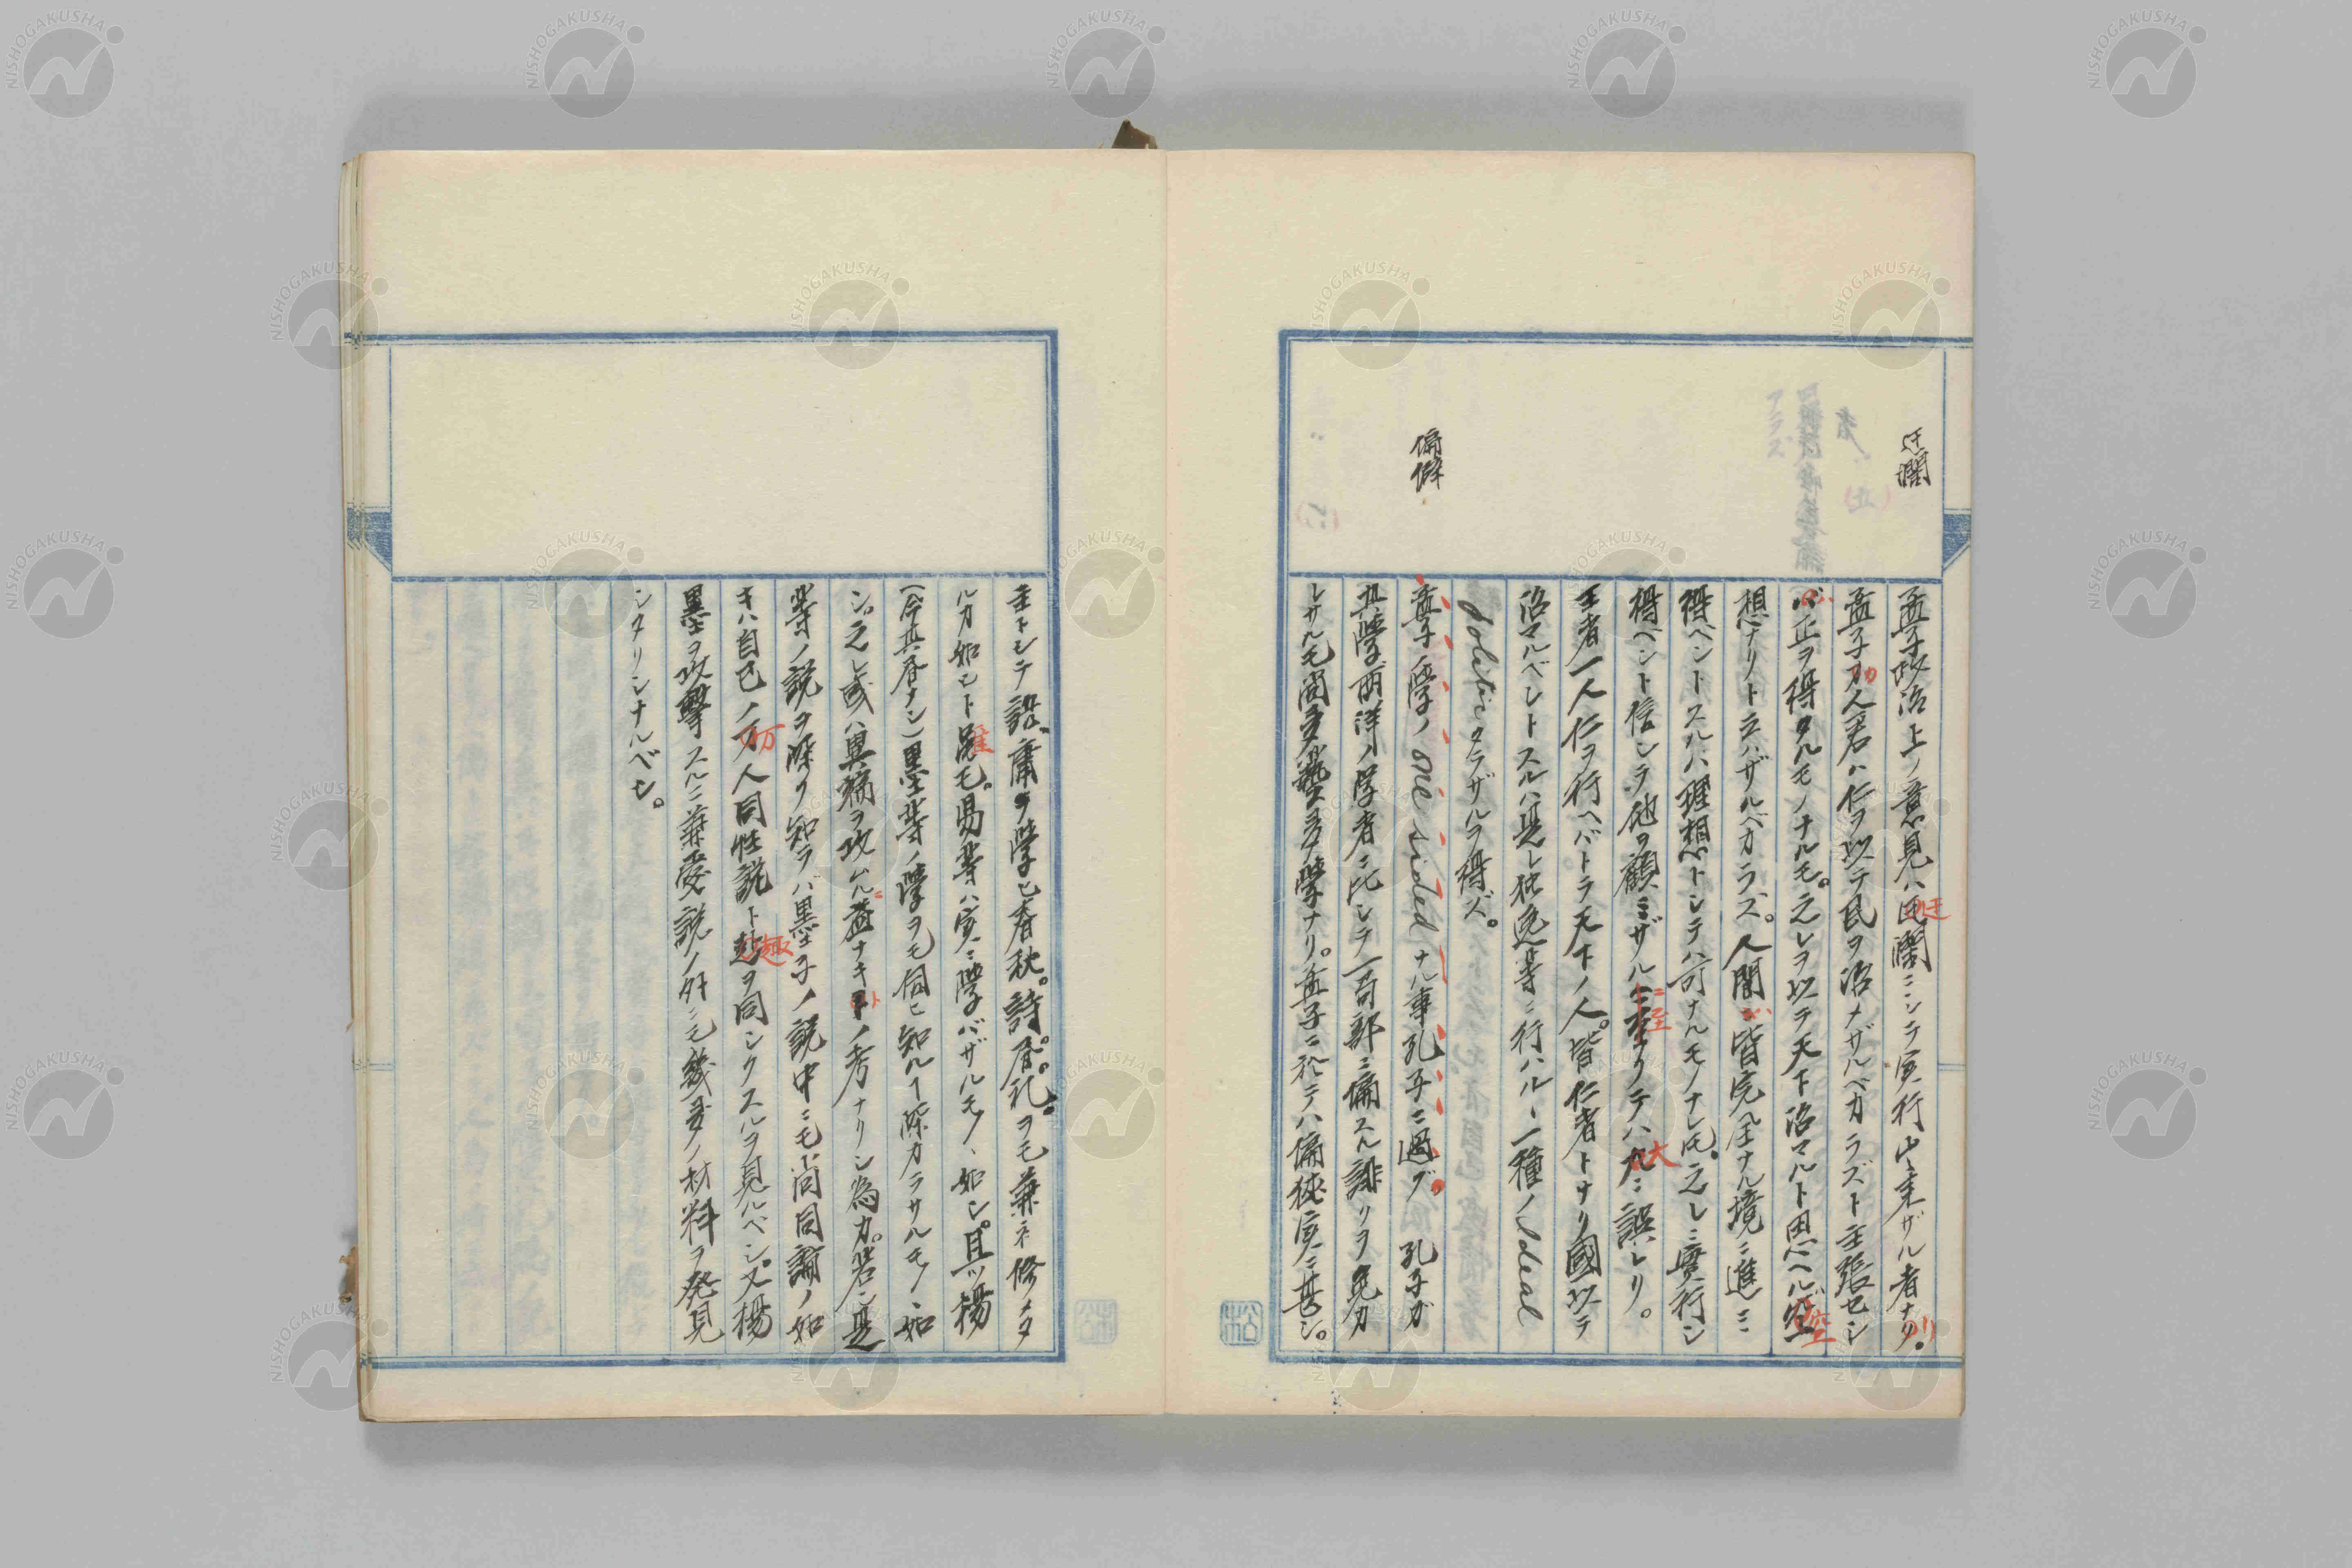 迂濶
孟子政治上ノ意見ハ迂濶ニシテ実行出来ザル者ナリ。
孟子ハ人君ハ仁ヲ以テ民ヲ治メザルベカラズト主張セシ
ハ正ヲ得タルモノナルモ。之レヲ以テ天下治マルト思ヘルハ空
想ナリト云ハザルベカラズ。人間ハ皆完全ナル境ニ進ミ
得ベシトスルハ理想トシテハ可ナルモノナレ𪜈。之レニ實行シ
得ベシト信シテ他ヲ顧ミザルニ至リテハ大ニ誤レリ。
王者一人仁ヲ行ヘバトテ天下ノ人。皆仁者トナリ國以テ
治マルベシトスルハ是レ独逸等ニ行ハルヽ一種ノIdeal
politicタラザルヲ得ズ。
偏僻
孟子ノ學ノone sidedナル事孔子ニ過グ。孔子ガ
其學西洋ノ学者ニ比シテ一局部ニ偏スル誹リヲ免カ
レサルモ尚多藝多學ナリ。孟子ニ於テハ偏狭実ニ甚シ。
主トシテ論、庸ヲ學ヒ春秋。詩。書。礼。ヲモ兼ネ修メタ
ルカ如シト雖モ。易等ハ実ニ學バザルモノヽ如シ。且ツ楊
(今其書ナシ)墨等ノ學ヲモ伺ヒ知ルヿ深カラサルモノヽ如
シ。之レ或ハ異端ヲ攻ムルニ益ナキトノ考ナリシ為カ。若シ是
等ノ説ヲ深ク知ラバ墨子ノ説中ニモ尚同論ノ如
キハ自己ノ万人同性説ト趣ヲ同シクスルヲ見ルベシ。又楊
墨ヲ攻撃スルニ兼愛説ノ外ニモ幾多ノ材料ヲ発見
シタリシナルベシ。